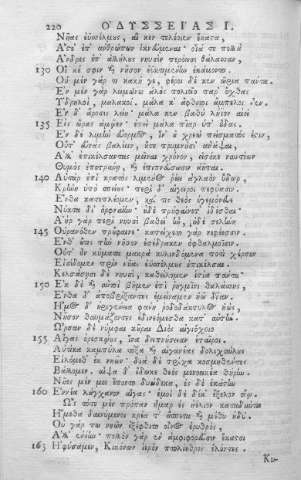 220 Ὀ Δ Υ Σ Σ Ε Ι Α Σ Ι.
Νῆας ἐϋσσέλμους, αἵ κεν τελέοιεν ἕκαστα,
Ἄστε᾽ ἐπ᾽ ἀνθρώπων ἱκνεύμεναι· οἷά τε πολλὰ
Ἄνδρες ἐπ᾽ ἀλλήλους νηυσὶν περόωσι θάλασσαν,
130 Οἵ κέ σφιν καὶ νῆσον ἐϋκτιμένην ἐκάμοντο.
Οὐ μὲν γάρ τι κακή γε, φέροι δέ κεν ὥρια πάντα.
Ἐν μὲν γὰρ λειμῶνες ἁλὸς πολιοῖο παρ᾽ ὄχθας
Ὑδρηλοὶ, μαλακοί. μάλα κ᾽ ἄφθιτοι ἄμπελοι εἶεν.
Ἐν δ᾽ ἄροσις λείη· μάλα κεν βαθὺ λήϊον αἰεὶ
135 Εἰς ὥρας ἀμῷεν· ἐπεὶ μάλα πῖαρ ὑπ᾽ οὖδας.
Ἐν δὲ λιμὴν εὔορμος, ἵν᾽ οὐ χρεὼ πείσματός ἐστιν,
Οὔτ᾽ εὐνὰς βαλέειν, οὔτε πρυμνήσι᾽ ἀνάψαι,
Ἀλλ᾽ ἐπικέλσαντας μεῖναι χρόνον, εἰσόκε ναυτέων
Θυμὸς ἐποτρύνῃ, καὶ ἐπιπνεύσωσιν ἀῆται.
140 Αὐτὰρ ἐπὶ κρατὸς λιμένος ῥέει ἀγλαὸν ὕδωρ,
Κρήνη ὑπὸ σπείους· περὶ δ᾽ αἴγειροι πεφύασιν.
Ἔνθα κατεπλέομεν, καί τις θεὸς ἡγεμόνευε
Νύκτα δι᾽ ὀρφναίην· οὐδὲ προὐφαίνετ᾽ ἰδέσθαι·
Ἀὴρ γὰρ περὶ νηυσὶ βαθεῖ᾽ ἦν, οὐδὲ σελήνη
145 Οὐρανόθεν προὔφαινε· κατείχετο γὰρ νεφέεσσιν.
Ἔνθ᾽ οὔτι τὴν νῆσον ἐσέδρακεν ὀφθαλμοῖσιν.
Οὔτ᾽ οὖν κύματα μακρὰ κυλινδόμενα ποτὶ χέρσον
Εἰσίδομεν πρὶν νῆας ἐϋσσέλμους ἐπικέλσαι.
Κελσάσῃσι δὲ νηυσὶ, καθείλομεν ἱστία πάντα·
150 Ἐκ δὲ καὶ αὐτοὶ βῆμεν ἐπὶ ῥηγμῖνι θαλάσσης,
Ἔνθα δ᾽ ἀποβρίξαντες ἐμείναμεν ἠῶ δῖαν.
Ἦμος δ᾽ ἠριγένεια φάνη ῥοδοδάκτυλος ἠὼς,
Νῆσον θαυμάζοντες ἐδινεόμεσθα κατ᾽ αὐτήν.
Ὦρσαν δὲ νύμφαι κοῦραι Διὸς αἰγιόχοιο
155 Αἶγας ὀρεσκῴους, ἵνα δειπνήσειαν ἑταῖροι.
Αὐτίκα καμπύλα τόξα καὶ αἰγανέας δολιχαύλους
Εἱλόμεθ᾽ ἐκ νηῶν· διὰ δὲ τρίχα κοσμηθέντες
Βάλλομεν. αἶψα δ᾽ ἔδωκε θεὸς μενοεικέα θήρην.
Νῆες μέν μοι ἕποντο δυώδεκα, ἐς δὲ ἑκάστην
160 Ἐννέα λάγχανον αἶγες· ἐμοὶ δὲ δέκ᾽ ἔξελον οἴῳ.
Ὣς τότε μὲν πρόπαν ἦμαρ ἐς ἠέλιον καταδύντα
Ἥμεθα δαινύμενοι κρέα τ᾽ ἄσπετα καὶ μέθυ ἡδύ.
Οὐ γάρ πω νηῶν ἐξέφθιτο οἶνος ἐρυθρὸς,
Ἀλλ᾽ ἐνέην· πολλὸν γὰρ ἐν ἀμφιφορεῦσιν ἕκαστοι
165 Ἠφύσαμεν, Κικόνων ἱερὸν πτολίεθρον ἑλόντες.